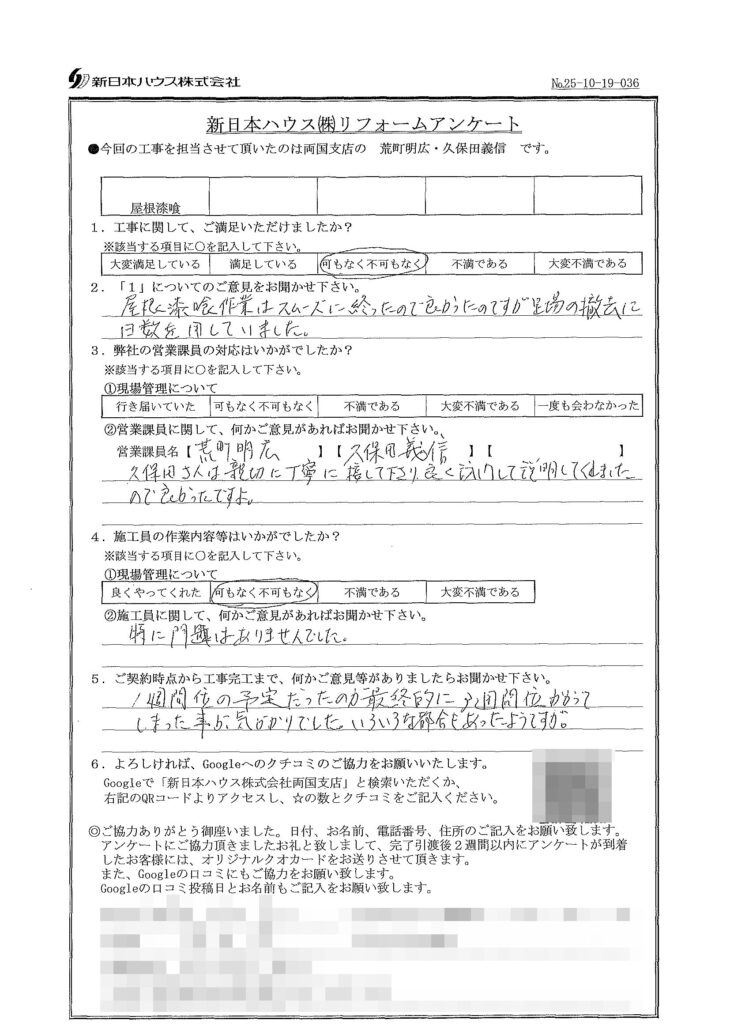 新日本ハウス株式会社
№25-10-19-036
新日本ハウス㈱リフォームアンケート
●今回の工事を担当させて頂いたのは両国支店の 荒町明広・久保田義信 です。
屋根漆喰
1．工事に関して、ご満足いただけましたか？
※該当する項目に○を記入して下さい。
大変満足している 満足している 可もなく不可もなく 不満である 大変不満である
2．「1」についてのご意見をお聞かせ下さい。
屋根漆喰作業はスムーズに終ったので良かったのですが足場の撤去に
日数を用していました。
3．弊社の営業課員の対応はいかがでしたか？
※該当する項目に○を記入して下さい。
①現場管理について
行き届いていた 可もなく不可もなく 不満である 大変不満である 一度も会わなかった
②営業課員に関して、何かご意見があればお聞かせ下さい。
営業課員名【荒町明広 】【久保田義信 】【 】
久保田さんは親切に丁寧に接して下さり良く訪問して説明してくれました
ので良かったですよ。
4．施工員の作業内容等はいかがでしたか？
※該当する項目に○を記入して下さい。
①現場管理について
良くやってくれた 可もなく不可もなく 不満である 大変不満である
②施工員に関して、何かご意見があればお聞かせ下さい。
特に問題はありませんでした。
5．ご契約時点から工事完工まで、何かご意見等がありましたらお聞かせ下さい。
1週間位の予定だったのが最終的に3週間位かかって
しまった事が気がかりでした。いろいろな都合もあったようですが。
6．よろしければ、Googleへのクチコミのご協力をお願いいたします。
Googleで「新日本ハウス株式会社両国支店」と検索いただくか、
右記のQRコードよりアクセスし、☆の数とクチコミをご記入ください。
◎ご協力ありがとう御座いました。日付、お名前、電話番号、住所のご記入をお願い致します。
アンケートにご協力頂きましたお礼と致しまして、完了引渡後2週間以内にアンケートが到着
したお客様には、オリジナルクオカードをお送りさせて頂きます。
また、Googleの口コミにもご協力をお願い致します。
Googleの口コミ投稿日とお名前もご記入をお願い致します。